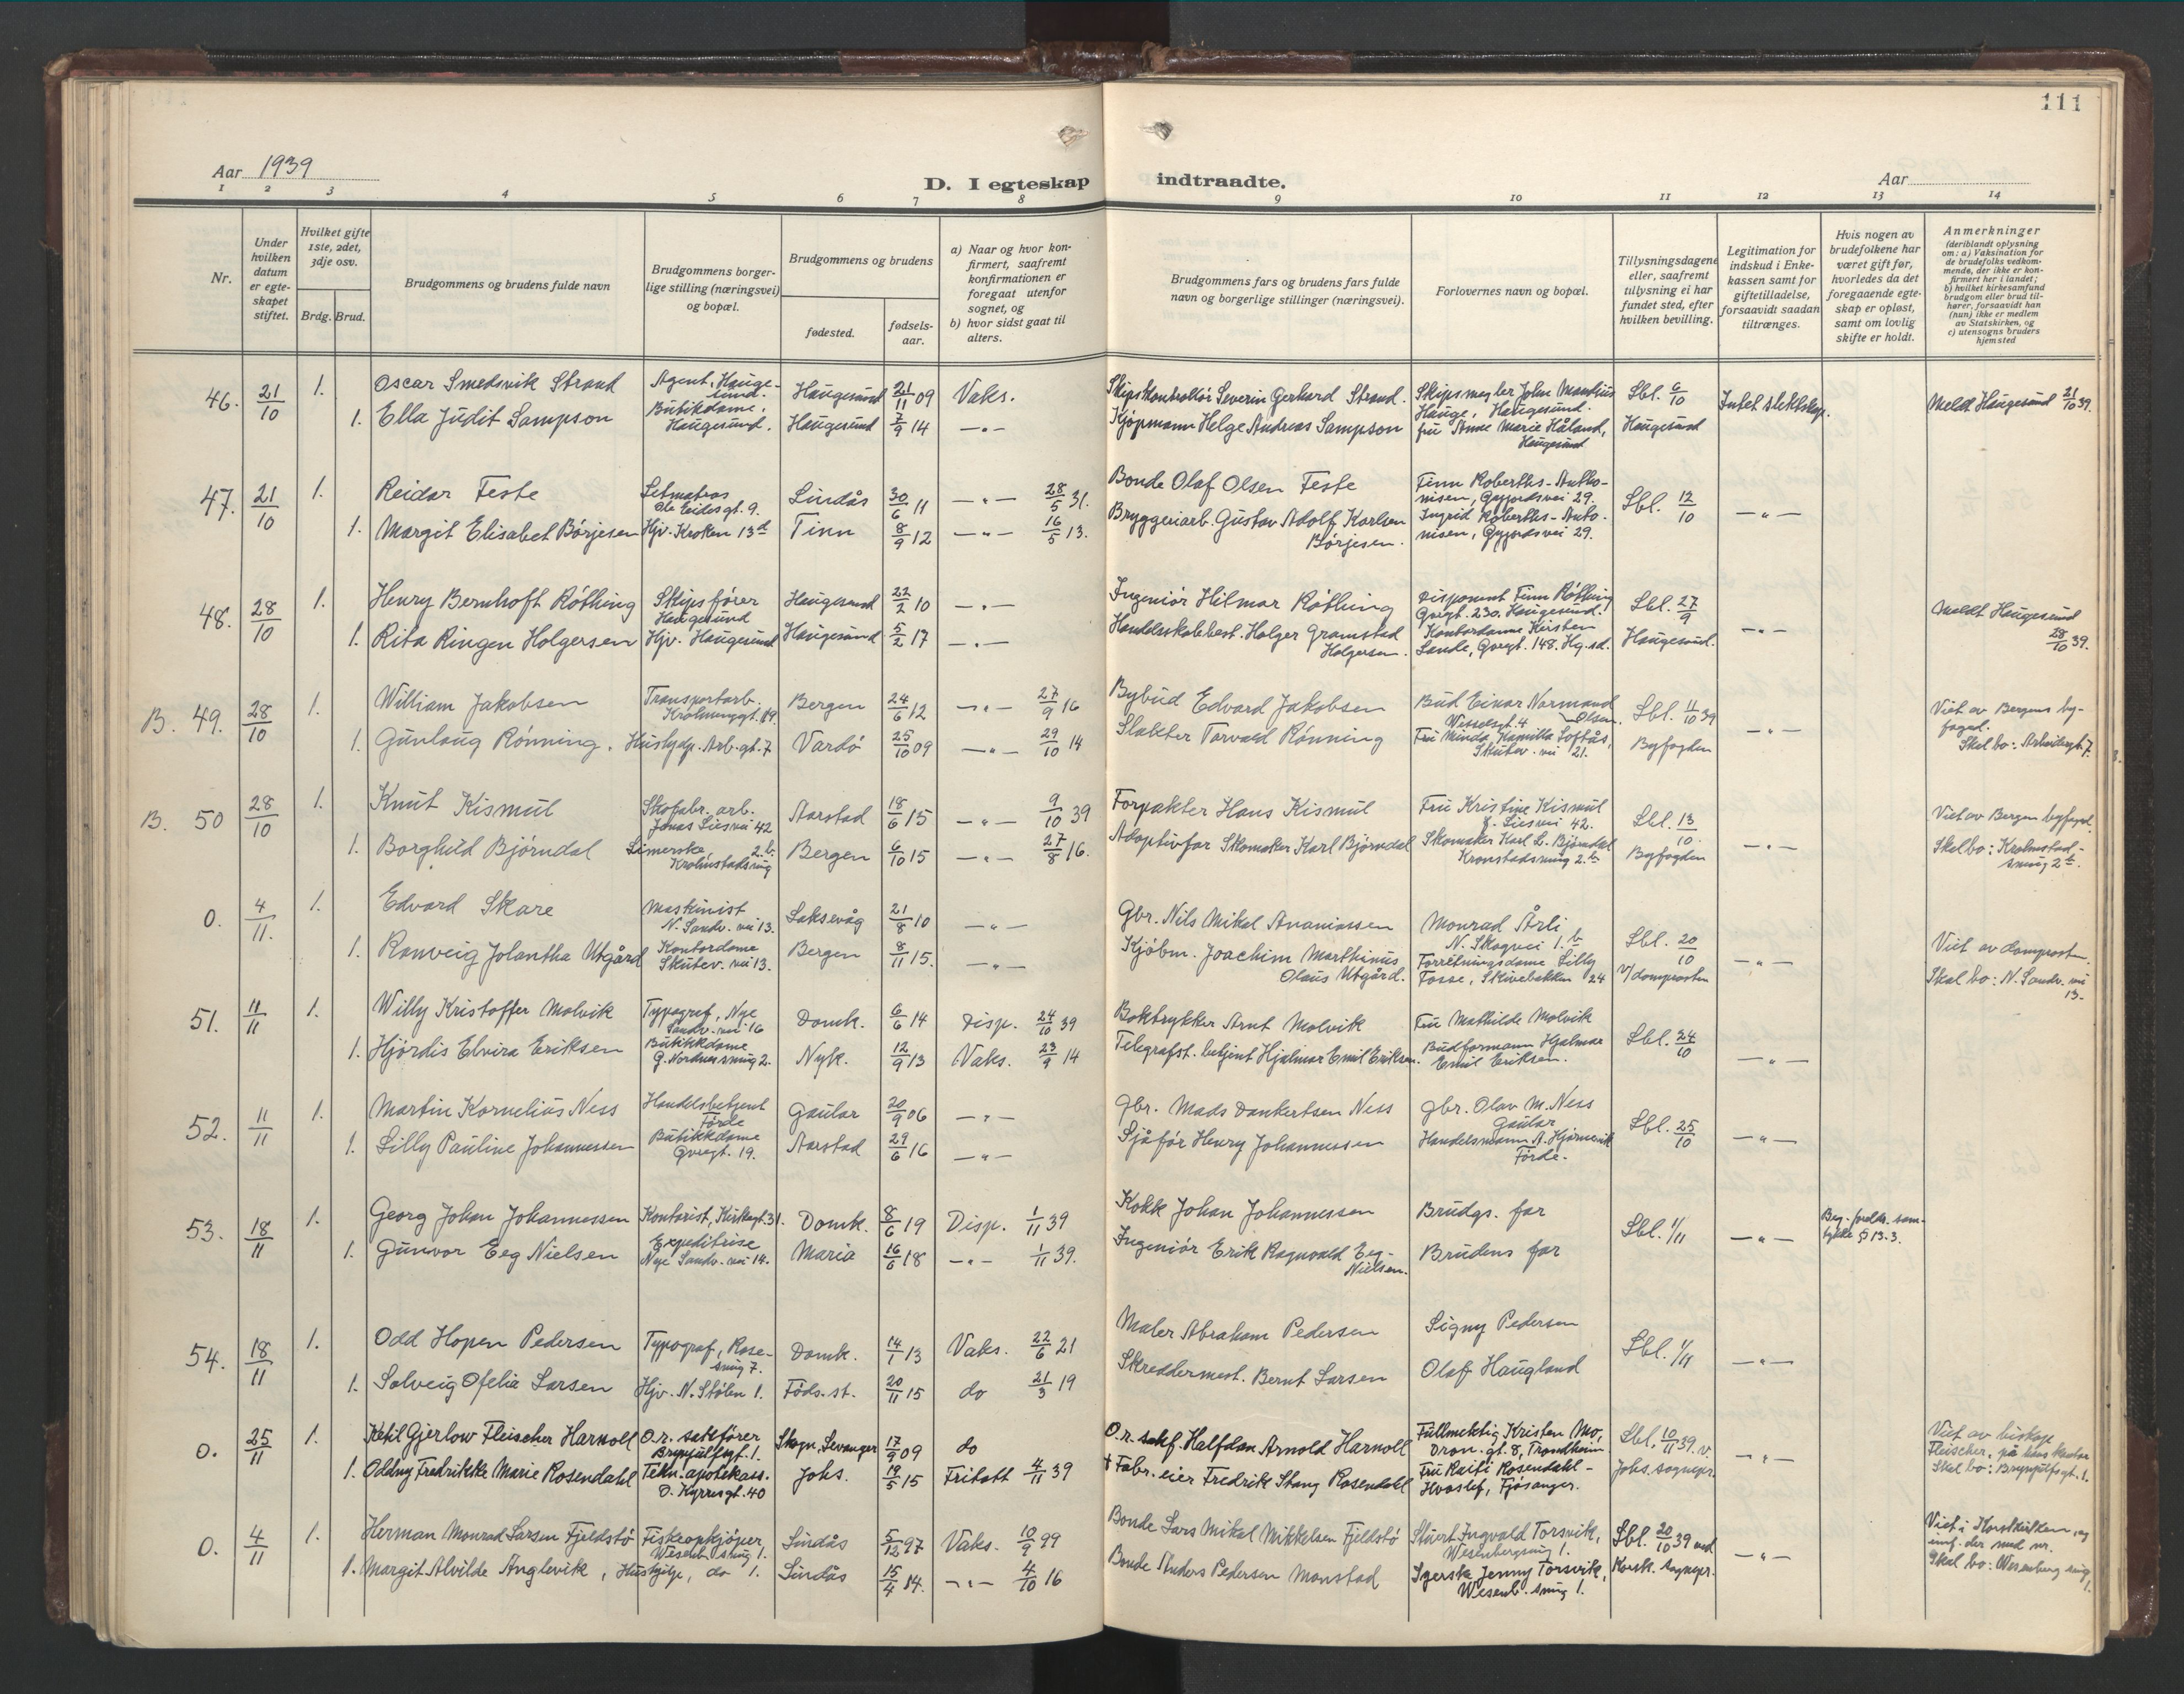 111
Aar 1939
D. I egteskap indtraadte.
Aar
1 2 3 4 5 6 7 8 9 10 11 12 13 14
Nr.
Under hvilken datum er egteskapet stiftet.
Hvilket gifte 1ste, 2det, 3dje osv.
Brdg. Brud.
Brudgommens og brudens fulde navn
Brudgommens borgerlige stilling (næringsvei) og bopæl.
Brudgommens og brudens
fødested.
fødselsaar.
a) Naar og hvor konfirmert, saafremt konfirmationen er foregaat utenfor sognet, og
b) hvor sidst gaat til alters.
Brudgommens fars og brudens fars fulde navn og borgerlige stillinger (næringsvei).
Forlovernes navn og bopæl.
Tillysningsdagene eller, saafremt tillysning ei har fundet sted, efter hvilken bevilling.
Legitimation for indskud i Enkekassen samt for giftetilladelse, forsaavidt saadan tiltrænges.
Hvis nogen av brudefolkene har været gift før, hvorledes da det foregaaende egteskap er opløst, samt om lovlig skifte er holdt.
Anmerkninger
(deriblandt oplysning om: a) Vaksination for de brudefolks vedkommende, der ikke er konfirmert her i landet; b) hvilket kirkesamfund brudgom eller brud tilhører, forsaavidt han (hun) ikke er medlem av Statskirken, og c) utensogns bruders hjemsted
46. 21/10 1. Oscar Smedsvik Strand Agent, Haugesund. Haugesund 21/11 09 Vaks. Skipskontrollør Severin Gerhard Strand. Skipsmegler John Mandius Hauge, Haugesund. Sbl. 6/10 Intet slektskap. Meldt Haugesund 21/10 39.
1. Ella Judit Sampson Butikdame, Haugesund. Haugesund 7/9 14 —"— Kjøpmann Helge Andreas Sampson fru Anne Marie Håland, Haugesund Haugesund
47. 21/10 1. Reidar Feste Letmatros Ole Eidesgt. 9. Lindås 30/6 11 —"— 28/5 31. Bonde Olaf Olsen Feste Finn Roberths-Anthonisen, Gyfjordsvei 29. Sbl. 12/10 —"—
1. Margit Elisabet Börjesen Hjv. Kroken 13d Tinn 8/9 12 —"— 16/5 13. Bryggeriarb. Gustav Adolf Karlsen Börjesen. Ingrid Roberths-Antonisen, Gyfjordsvei 29.
48. 28/10 1. Henry Bernhoft Röthing Skipsfører Haugesund Haugesund 22/2 10 —"— Ingeniör Hilmar Röthing Disponent Finn Röthing Gvegt. 230. Haugesund. Sbl. 27/9 —"— Meldt Haugesund 28/10 39.
1. Rita Ringen Holgersen Hjv. Haugesund Haugesund 5/2 17 —"— Handelsskolebest. Holger Gramstad Holgersen. Kontordame Kirsten Lande, Gvegt. 148. Hg.sd. Haugesund.
B. 49. 28/10 1. William Jakobsen Transportarb. Bergen 24/6 12 —"— 27/9 16 Bybud Edvard Jakobsen Bud Einar Normand Olsen. Wesselsgt. 4 Sbl. 11/10 39 —"— Viet av Bergens byfoged.
1. Gunlaug Rönning. Arb.gt. 7 Vardö 25/10 09 —"— 29/10 14 Slakter Torvald Rönning Fru Minda Kamilla Loftås, Skutev. vei 21. Byfogden Skal bo: Arbeidergt. 7.
B. 50 28/10 1. Knut Kismul Skofabr. arb. Jonas Liesvei 42 Aarstad 18/6 15 —"— 9/10 39 Forpakter Hans Kismul Fru Kristine Kismul J. Liesvei 42. Sbl. 13/10 —"— Viet av Bergen byfoged.
1. Borghild Björndal Limerske, Kronstadsmug 2.b. Bergen 6/10 15 —"— 27/8 16. Adoptivfar Skomaker Karl Björndal Skomaker Karl L. Björndal Kronstadsmug 2.b Byfogden Skal bo: Kronstadsmug 2b.
0. 4/11. 1. Edvard Skare Maskinist N. Sandv. vei 13. Laksevåg 21/8 10 —"— Gbr. Nils Mikal Ananiassen Monrad Årli N. Skogvei 1.b Sbl. 20/10 —"— Viet av domprosten.
1. Ranveig Jolantha Utgård Kontordame Skutev. vei 13. Bergen 8/11 15. —"— Kjöbm. Joachim Marthinus Olaus Utgård. Forretningsdame Lilly Fosse, Skivebakken 24 v/domprosten Skal bo: N. Sandv. vei 13.
51. 11/11 1. Willy Kristoffer Molvik Typograf, Nye Sandv. vei 16 Domk. 6/6 14 Disp. 24/10 39 Boktrykker Arnt Molvik Fru Mathilde Molvik Sbl. 24/10 —"—
1. Hjördis Elvira Eriksen Butikkdame G. Nordnessmug 2. Nyk. 12/9 13 Vaks. 23/9 14 Telegrafst. betjent Hjalmar Emil Eriksen. Budformann Hjalmar Emil Eriksen.
52. 11/11 1. Martin Kornelius Ness Handelsbetjent Förde Gaular 20/9 06 —"— Gbr. Mads Dankertsen Ness Gbr. Olav M. Ness Gaular Sbl. 25/10 —"—
1. Lilly Pauline Johannessen Butikkdame Gvregt. 19. Aarstad 29/6 16 —"— Sjåför Henry Johannessen Handelsmann A. Hjörnevik Förde.
53. 18/11 1. Georg Johan Johannessen Kontorist, Kirkegt. 31. Domk. 8/6 19 Disp. 1/11 39 Kokk Johan Johannessen Brudgs. far Sbl. 1/11 —"— Beg. foreldr. samtykke § 13.3.
1. Gunvor Eeg Nielsen Expeditrise Nye Sandv. vei 14. Maria 16/6 18 —"— 1/11 39. Ingeniör Erik Ragnvald Eeg-Nielsen. Brudens far
54. 18/11 1. Odd Hopen Pedersen Typograf, Rosesmug 7. Domk. 14/1 13 Vaks. 22/6 21 Maler Abraham Pedersen Signy Pedersen Sbl. 1/11 —"—
1. Solveig Ofelia Larsen Hjv. N. Stölen 1. Föds.st. 20/11 15 do 21/3 19 Skreddermest. Bernt Larsen Olaf Haugland
0. 25/11 1. Ketil Gjerlow Fleischer Harnoll O.r. sakfører Brynjulfsgt. 1. Skogn, Levanger 17/9 09 do O.r. sakf. Halfdan Arnold Harnoll Fullmektig Kristen Mo, Dron. gt. 8, Trondheim Sbl. 10/11 39. v. —"— Viet av biskop Fleischer, på hans kontor
1. Oddny Fredrikke Marie Rosendahl Tekn. apotekass. O. Kyrresgt. 40 Johs. 14/5 15 Fritatt 4/11 39 † Fabr. eier Fredrik Stang Rosendahl Fru Raiti Rosendahl-Hvoslef, Fjösanger. Johs. sognepr. Skal bo: Brynjulfsgt. 1.
0. 4/11 1. Herman Monrad Larsen Fjeldstö Fiskeopkjöper, Wesenb. smug 1. Lindås 5/12 97 Vaks. 10/9 99 Bonde Lars Mikal Mikkelsen Fjeldstö Stuert Ingvald Torsvik, Wesenbergsmug 1. Sbl. 20/10 39 ved —"— Viet i Korskirken, og innf. der med nr.
1. Margit Alvilde Anglevik, Hushjelp, do 1. Lindås 15/4 14. —"— 4/10 16 Bonde Anders Pedersen Monstad Jenny Torsvik, Wesenb. smug 1. Korsk. sognepr. Skal bo: Wesenberg smug 1.